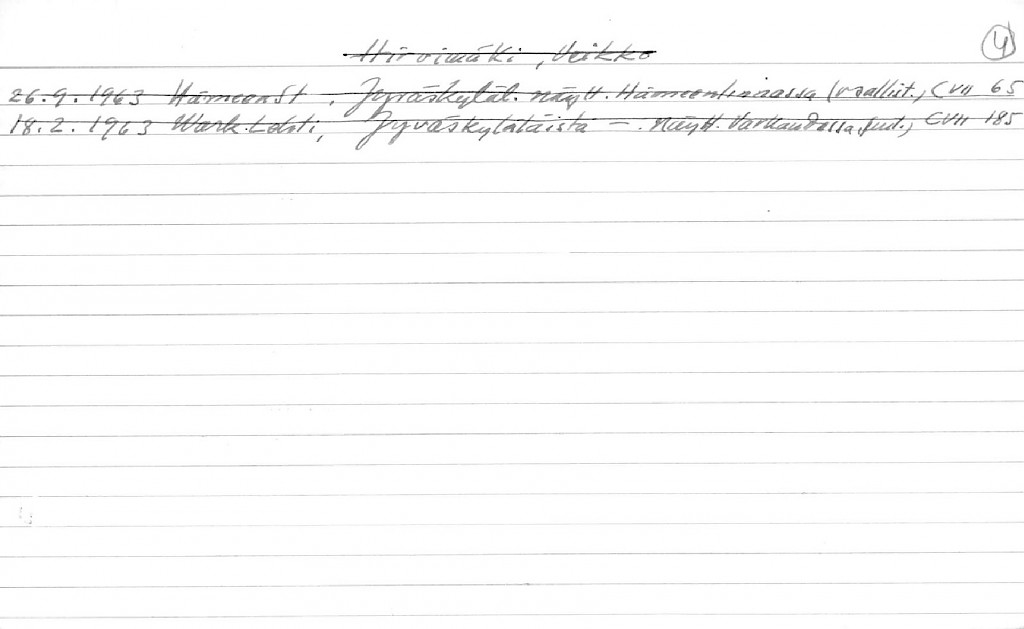 Hirvimäki, Veikko
4
26.9.1963 Hämeen St, Jyväskyläl. näytt. Hämeenlinnassa ( CVII 65
18.2.1963 Wark. Lehti, Jyväskyläläistä – näytt. Varkaudessa CVII 185